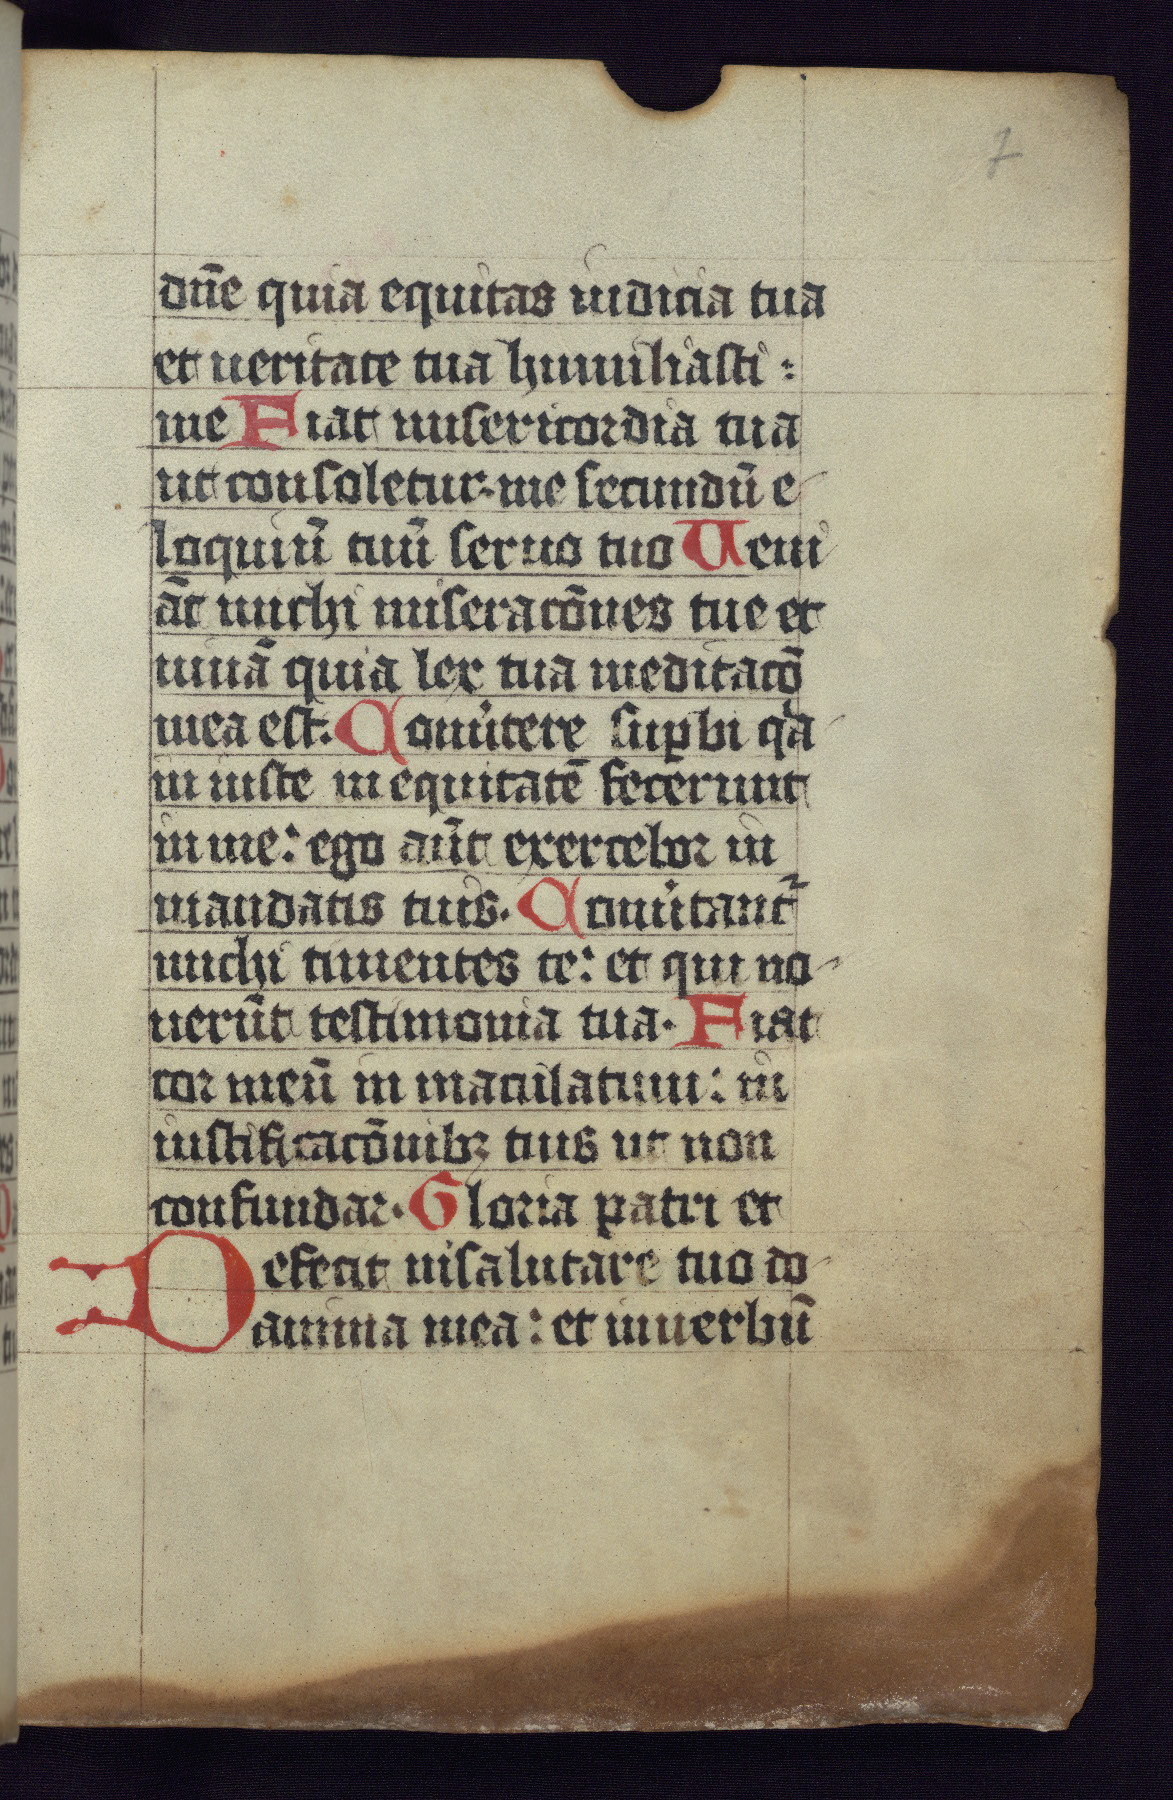 7
dn̄e quia equitas iudicia tua
et ueritate tua humiliasti :
me Fiat misericordia tua
ut consoletur me secundū e
loquiū tuū seruo tuo Ueni
āt michi miseracōnes tue et
uiuā quia lex tua meditacō
mea est. Confūtere suꝑbi qͣa
in iuste in equitatē fecerunt
in me: ego aūt exercebor in
mandatis tuis.
michi timentes te: et qui no
uerūt testimonia tua. Fiat
cor meū in maculatum: in
iustificacōnibꝫ tuis ut non
confundar. Gloria patri et
Defecit in salutare tuo do
anima mea: et in uerbū